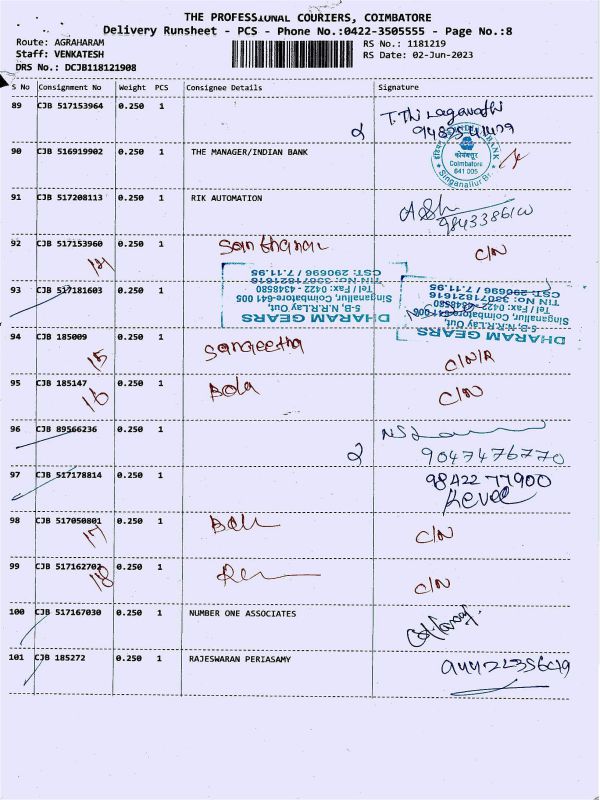 THE PROFESSIONAL COURIERS, COIMBATORE
Delivery Runsheet - PCS - Phone No.:0422-3505555 - Page No.:8
Route: AGRAHARAM RS No.: 1181219
Staff: VENKATESH RS Date: 02-Jun-2023
DRS No.: DCJB118121908
S No Consignment No Weight PCS Consignee Details Signature
89 CJB 517153964 0.250 1
2
90 CJB 516919902 0.250 1 THE MANAGER/INDIAN BANK
BANK
कोयंबत्तूर
Coimbatore
641 005
Singanallur Br.
91 CJB 517208113 0.250 1 RIK AUTOMATION
Ash
92 CJB 517153960 0.250 1 Santhanam C/N
14
93 CJB 517181603 0.250 1
DHARAM GEARS
5-B, N.R.R.Lay Out,
Singanallur, Coimbatore-641 005
Tel / Fax : 0422 - 4348580
TIN No: 33071821616
CST: 290696 / 7.11.95
DHARAM GEARS
5-B, N.R.R.Lay Out,
Singanallur, Coimbatore-641 005
Tel / Fax : 0422 - 4348580
TIN No: 33071821616
CST: 290696 / 7.11.95
94 CJB 185009 0.250 1 Sangeetha C/N/R
15
95 CJB 185147 0.250 1 Bala C/N
16
96 CJB 89566236 0.250 1
2 9047476770
97 CJB 517178814 0.250 1 98422 77900
98 CJB 517050801 0.250 1 C/N
17
99 CJB 517162702 0.250 1 C/N
18
100 CJB 517167030 0.250 1 NUMBER ONE ASSOCIATES
101 CJB 185272 0.250 1 RAJESWARAN PERIASAMY